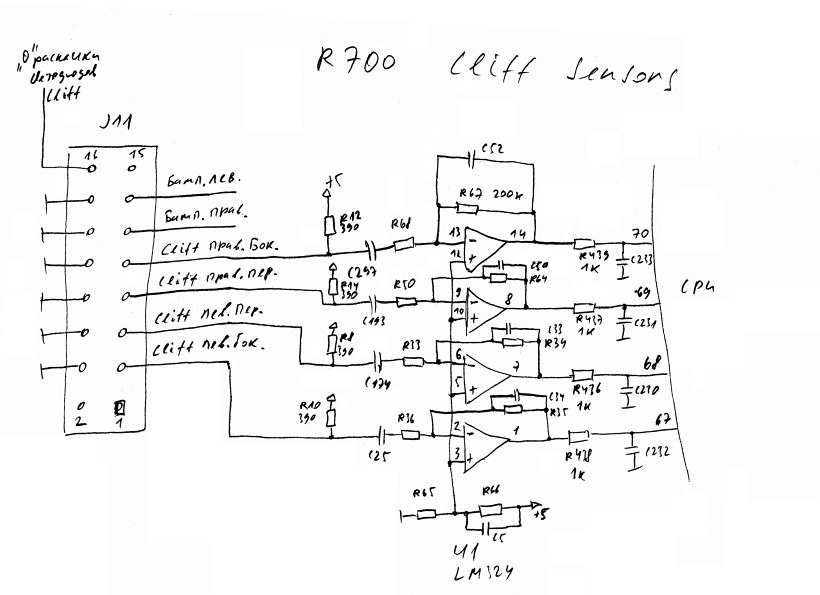 R700 Cliff sensors
"О" раскачки
светодиодов
Cliff
J11
16 15
Бамп. лев.
Бамп. прав.
Cliff прав. бок.
Cliff прав. пер.
Cliff лев. пер.
Cliff лев. бок.
2 1
+5
R12
390
C297
R68
C52
R67 200K
13
12
14
R439
1K
C233
70
R14
390
C193
R50
C50
R64
9
10
8
R437
1K
C231
69
CPU
R8
390
C174
R33
C33
R34
6
5
7
R436
1K
C230
68
R10
390
C25
R36
C34
R35
2
3
1
R438
1K
C232
67
R65
R66
C5
+5
U1
LM324